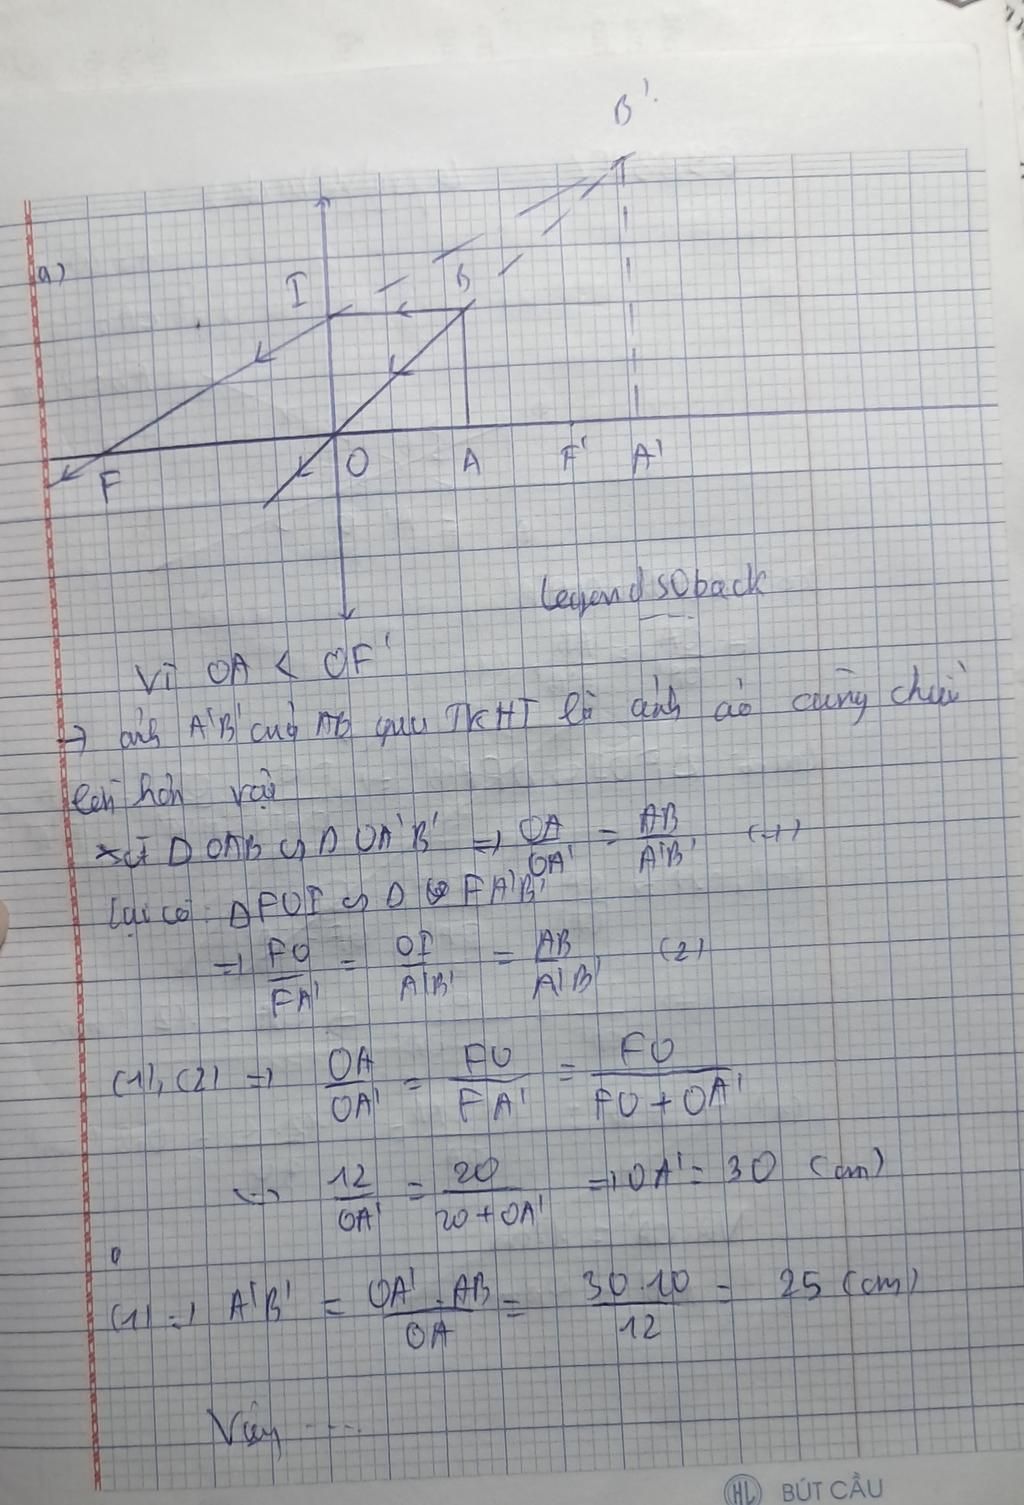 B'
a)
I B
F O A F' A'
Legends0back
Vì OA < OF'
→ ảnh A'B' của AB qua TKHT là ảnh ảo cùng chiều
lớn hơn vật
Xét Δ OAB ∽ Δ OA'B' => OA/OA' = AB/A'B' (1)
Lại có: Δ FOI ∽ Δ FA'B'
=> FO/FA' = OI/A'B' = AB/A'B' (2)
(1), (2) => OA/OA' = FO/FA' = FO/FO + OA'
<=> 12/OA' = 20/20 + OA' => OA' = 30 (cm)
(1) => A'B' = OA'.AB/OA = 30.10/12 = 25 (cm)
Vậy ....
HL BÚT CẦU